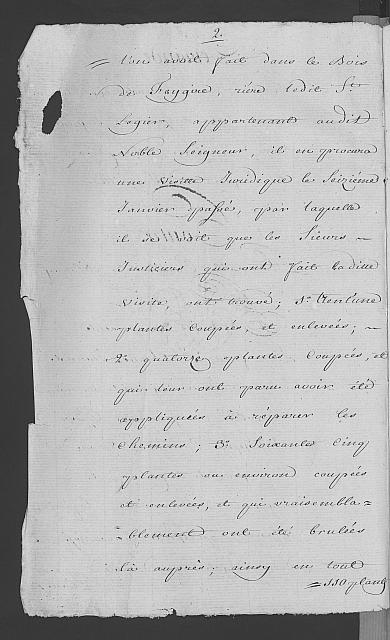 2.
= l'on avoit fait dans le Bois
de Faygire, riére ledit St.
Legier, appartenant audit
Noble Seigneur, il en procura
une Visitte Juridique le Seiziéme
Janvier passé, par laquelle
il se voit que les Sieurs –
Justiciers qui ont fait laditte
Visite, ont trouvé; 1°. trent'une
plantes Coupées, et enlevées; –
2°. quatorze plantes Coupées, et
qui leur ont paru avoir été
appliquées à réparer les
Chemins; 3°. Soixantes Cinq
plantes ou environ coupées
et enlevées, et qui vraisembla=
=blement ont été brulées
là auprès; ainsy en tout
= 110 plant